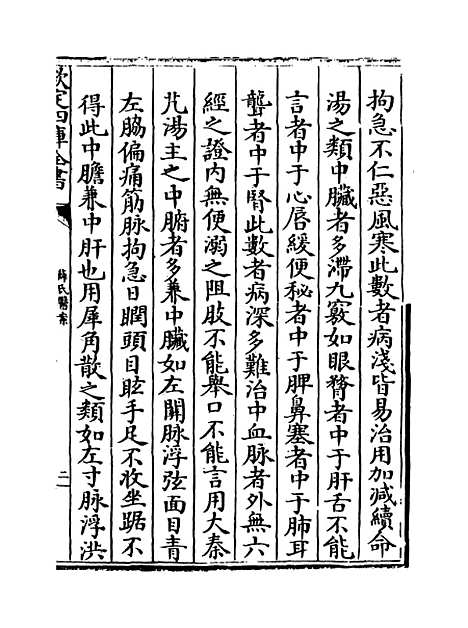 拘急不仁惡風寒此數者病淺皆易治用加減續命
湯之類中臟者多滯九竅如眼瞀者中于肝舌不能
言者中于心唇緩便秘者中于脾鼻塞者中于肺耳
聾者中于腎此數者病深多難治中血脉者外無六
經之證内無便溺之阻肢不能舉口不能言用大秦
艽湯主之中腑者多兼中臟如左關脉浮弦面目青
左脇偏痛筋脉拘急目瞤頭目眩手足不收坐踞不
得此中膽兼中肝也用犀角散之類如左寸脉浮洪
欽定四庫全書
薛氏醫案
二